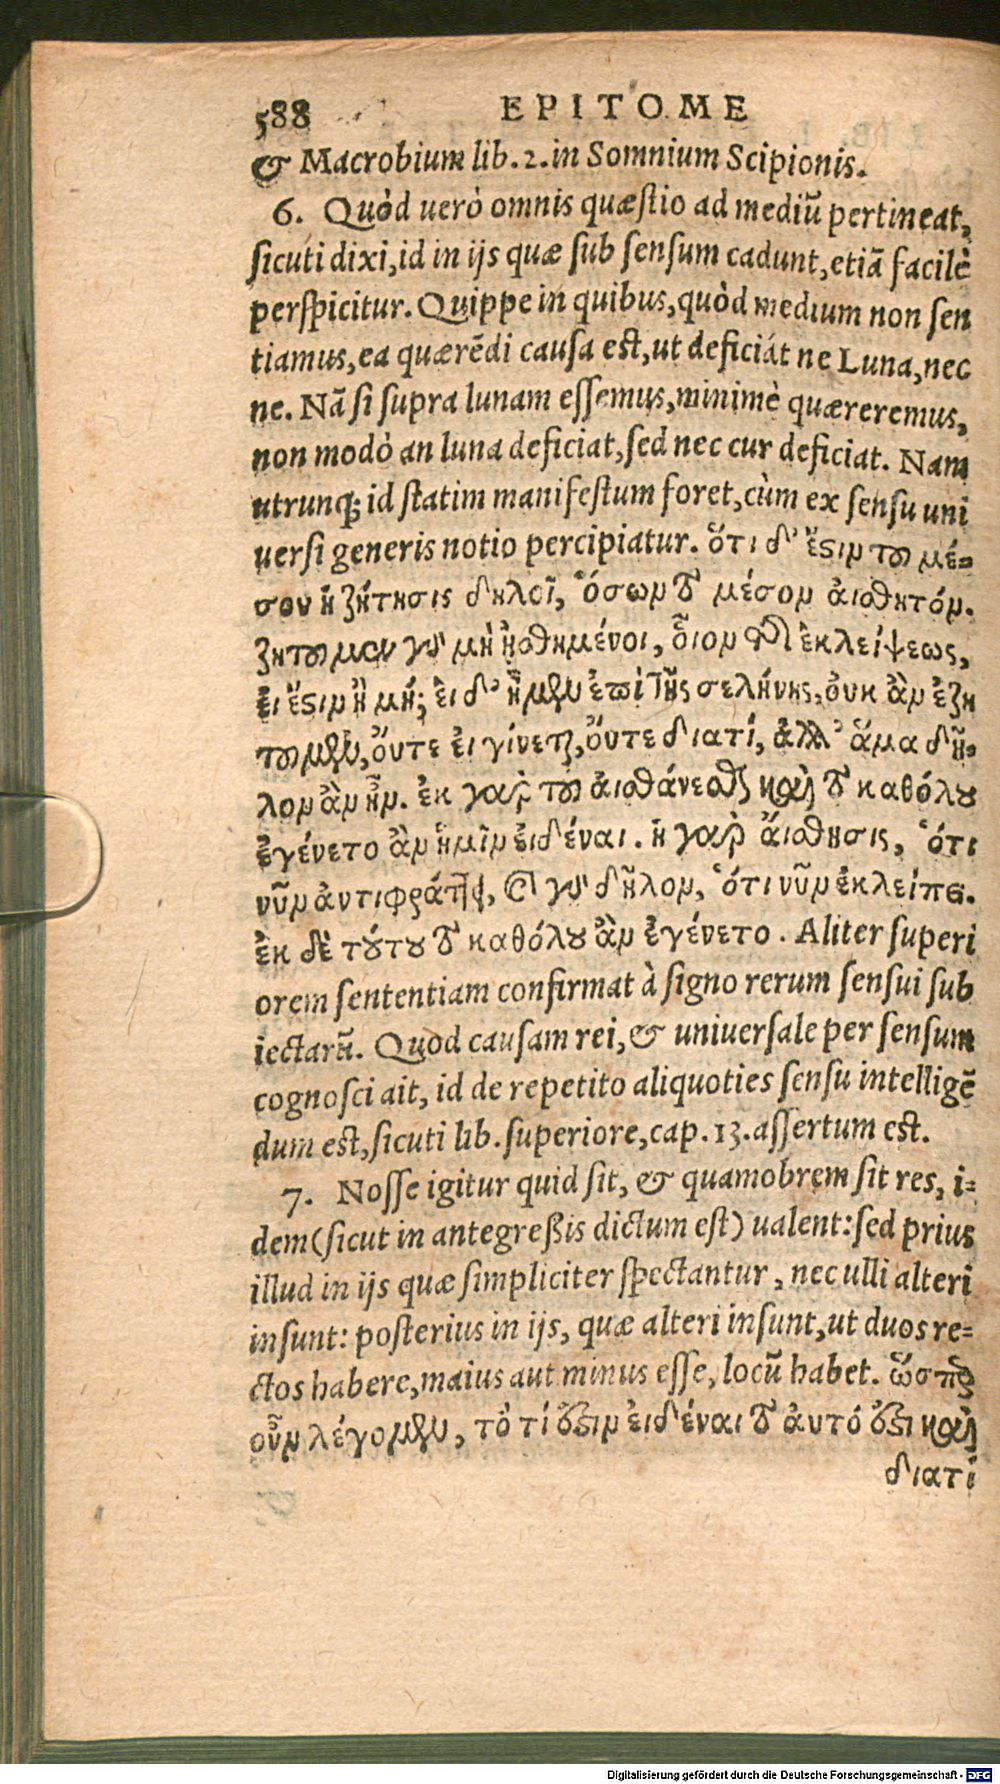 588 EPITOME
& Macrobium lib. 2. in Somnium Scipionis.
6. Quòd uerò omnis quæstio ad mediũ pertineat,
sicuti dixi, id in ijs quæ sub sensum cadunt, etiã facilè
perspicitur. Quippe in quibus, quòd medium non sen
tiamus, ea quærẽdi causa est, ut deficiát ne Luna, nec
ne. Nã si supra lunam essemus, minimè quæreremus,
non modò an luna deficiat, sed nec cur deficiat. Nam
utrunq; id statim manifestum foret, cùm ex sensu uni
uersi generis notio percipiatur. ὅτι δ' ἔστιν τοῦ μέ=
σου ἡ ζήτησις δηλοῖ, ὅσων τὸ μέσον αἰσθητόν.
ζητοῦμεν γὰρ μὴ ᾐσθημένοι, οἷον τῆς ἐκλείψεως,
εἰ ἔστιν ἢ μή; εἰ δ' ἦμεν ἐπὶ τῆς σελήνης, οὐκ ἂν ἐζη
τοῦμεν, οὔτε εἰ γίνεται, οὔτε διατί, ἀλλ' ἅμα δῆ=
λον ἂν ἦν. ἐκ γὰρ τοῦ αἰσθάνεσθαι καὶ τὸ καθόλου
ἐγένετο ἂν ἡμῖν εἰδέναι. ἡ γὰρ αἴσθησις, ὅτι
νῦν ἀντιφράττει, καὶ γὰρ δῆλον, ὅτι νῦν ἐκλείπει.
ἐκ δὲ τούτου τὸ καθόλου ἂν ἐγένετο. Aliter superi
orem sententiam confirmat à signo rerum sensui sub
iectarũ. Quod causam rei, & uniuersale per sensum
cognosci ait, id de repetito aliquoties sensu intelligẽ
dum est, sicuti lib. superiore, cap. 13. assertum est.
7. Nosse igitur quid sit, & quamobrem sit res, i=
dem (sicut in antegreßis dictum est) ualent: sed prius
illud in ijs quæ simpliciter spectantur, nec ulli alteri
insunt: posterius in ijs, quæ alteri insunt, ut duos re=
ctos habere, maius aut minus esse, locũ habet. ὥσπερ
οὖν λέγομεν, τὸ τί ἐστιν εἰδέναι τὸ αὐτό ἐστι καὶ
διατί
Digitalisierung gefördert durch die Deutsche Forschungsgemeinschaft - DFG